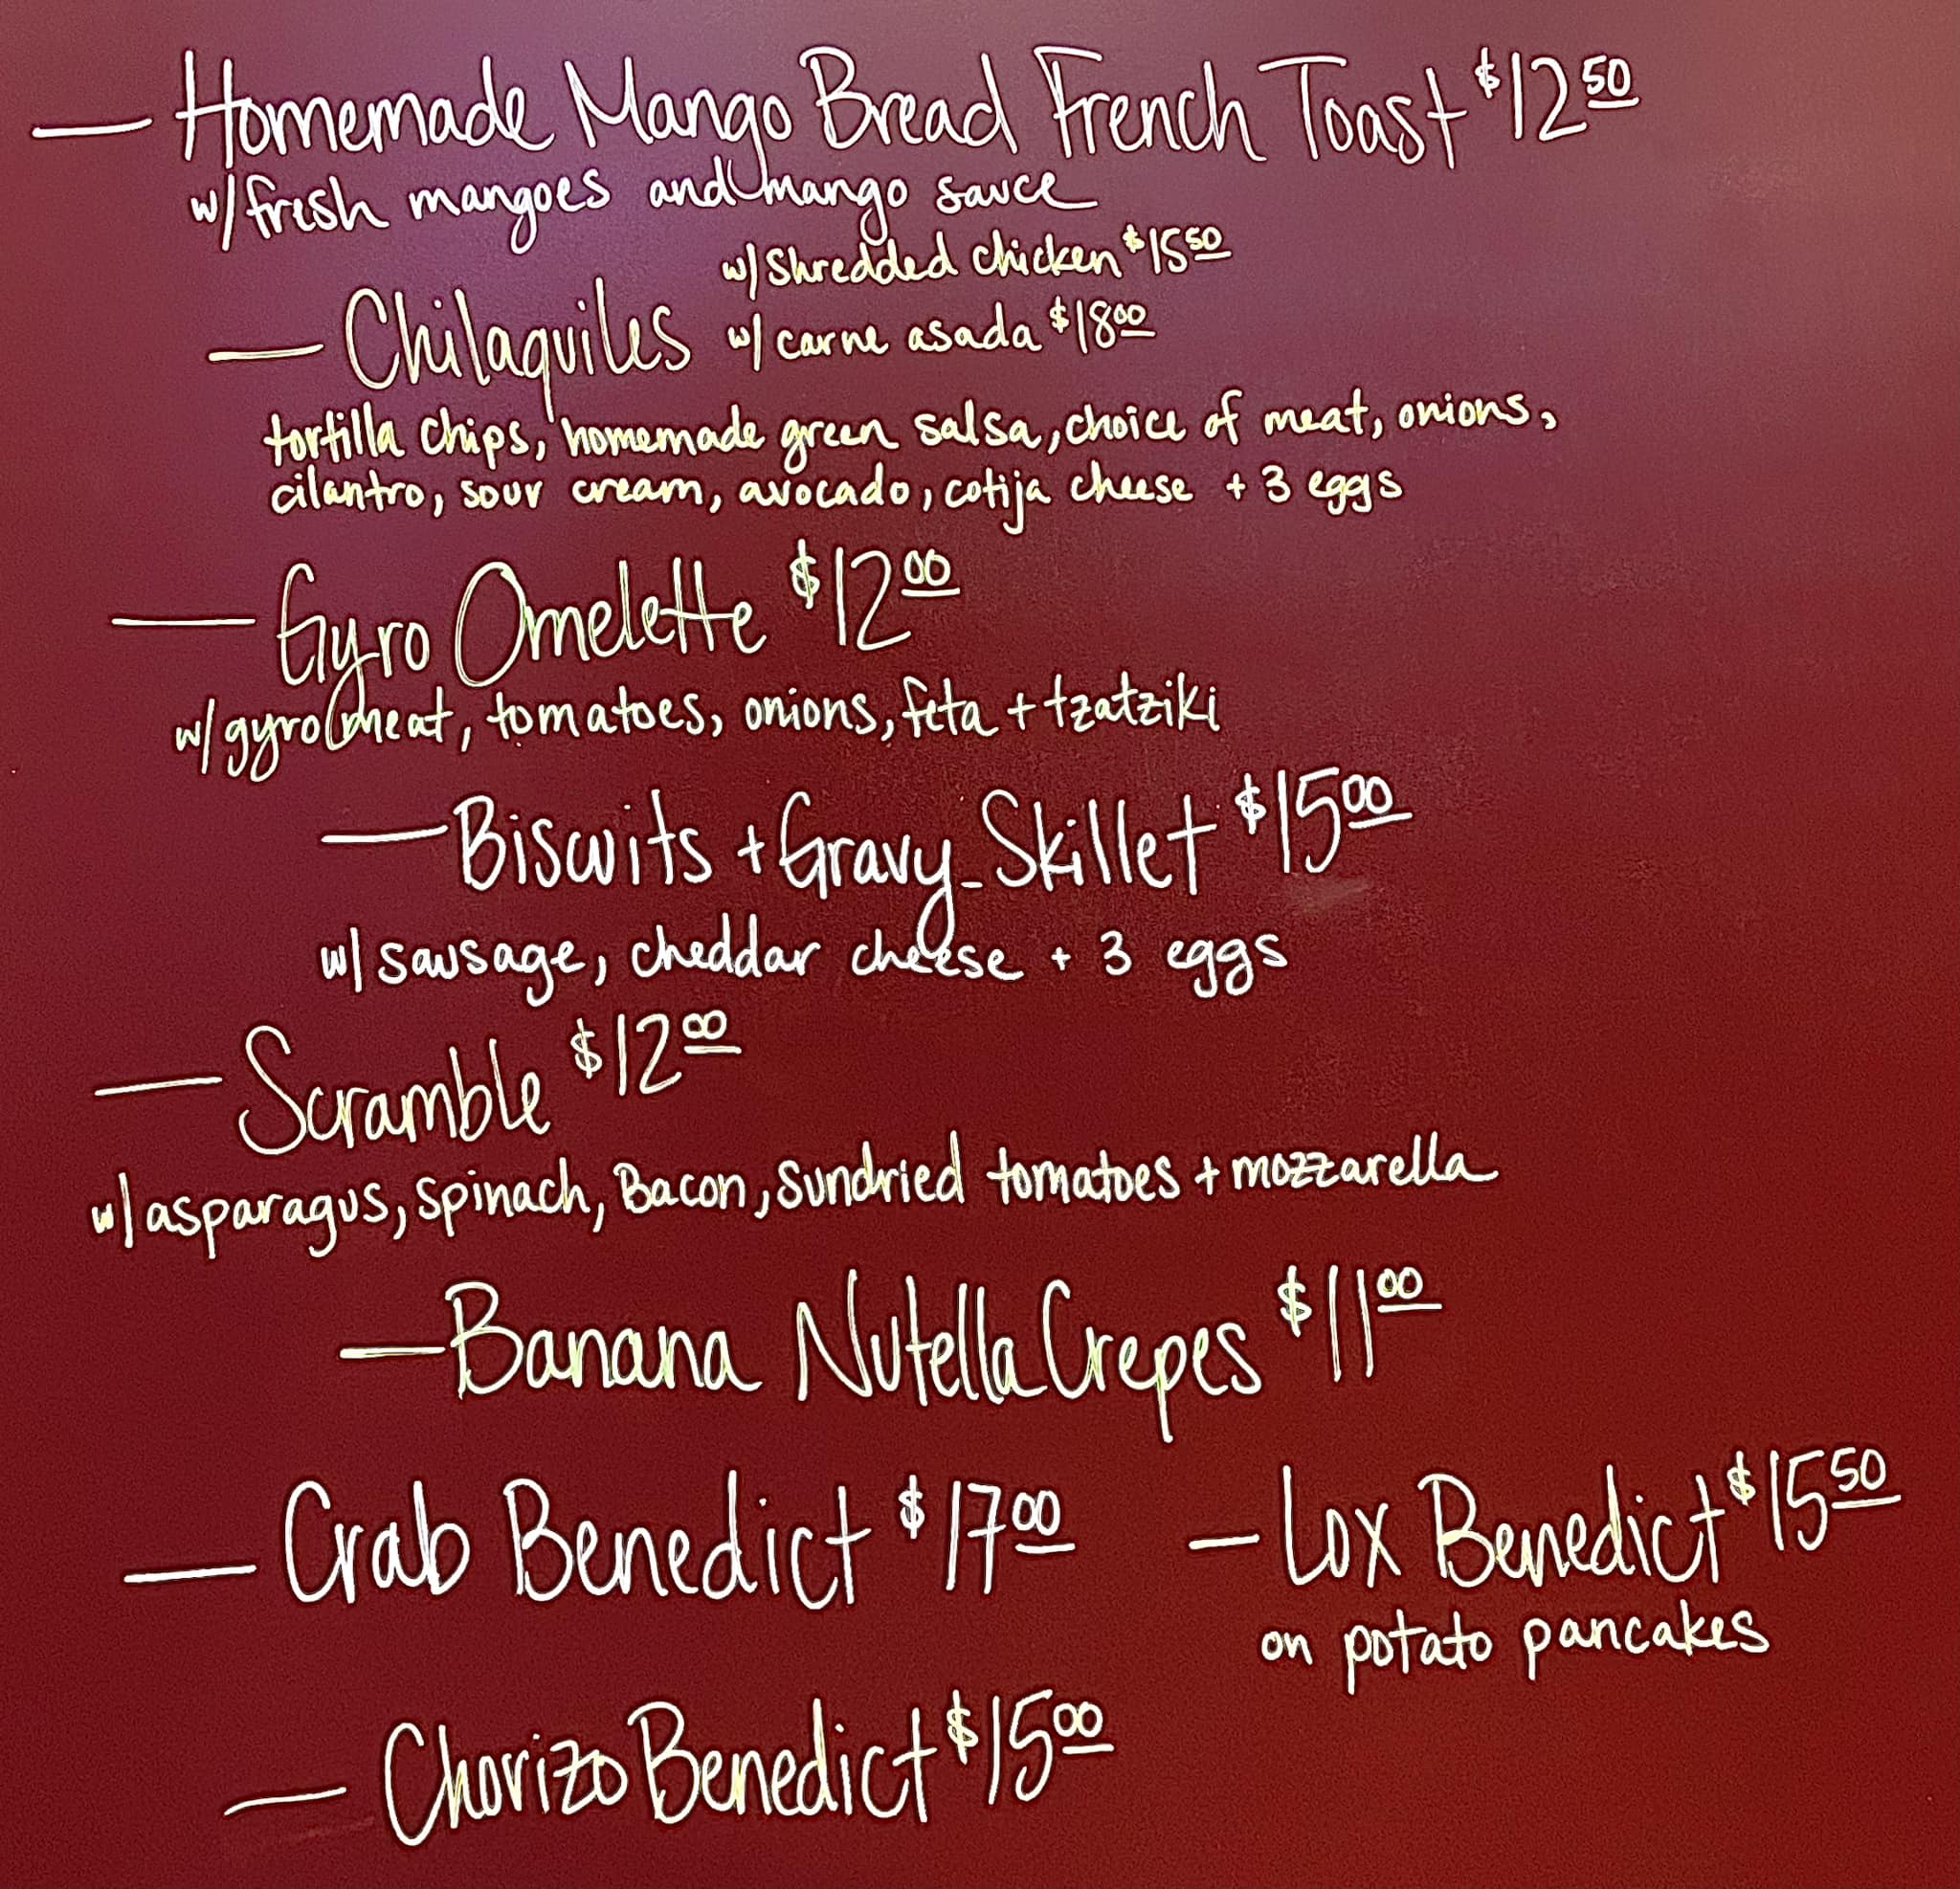 — Homemade Mango Bread French Toast $12.50
w/ fresh mangoes and mango sauce
w/ Shredded chicken $15.50
— Chilaquiles w/ carne asada $18.00
tortilla chips, homemade green salsa, choice of meat, onions,
cilantro, sour cream, avocado, cotija cheese + 3 eggs
— Gyro Omelette $12.00
w/ gyro meat, tomatoes, onions, feta + tzatziki
— Biscuits + Gravy Skillet $15.00
w/ sausage, cheddar cheese + 3 eggs
— Scramble $12.00
w/ asparagus, Spinach, Bacon, Sundried tomatoes + mozzarella
— Banana Nutella Crepes $11.00
— Crab Benedict $17.00
— Lox Benedict $15.50
on potato pancakes
— Chorizo Benedict $15.00